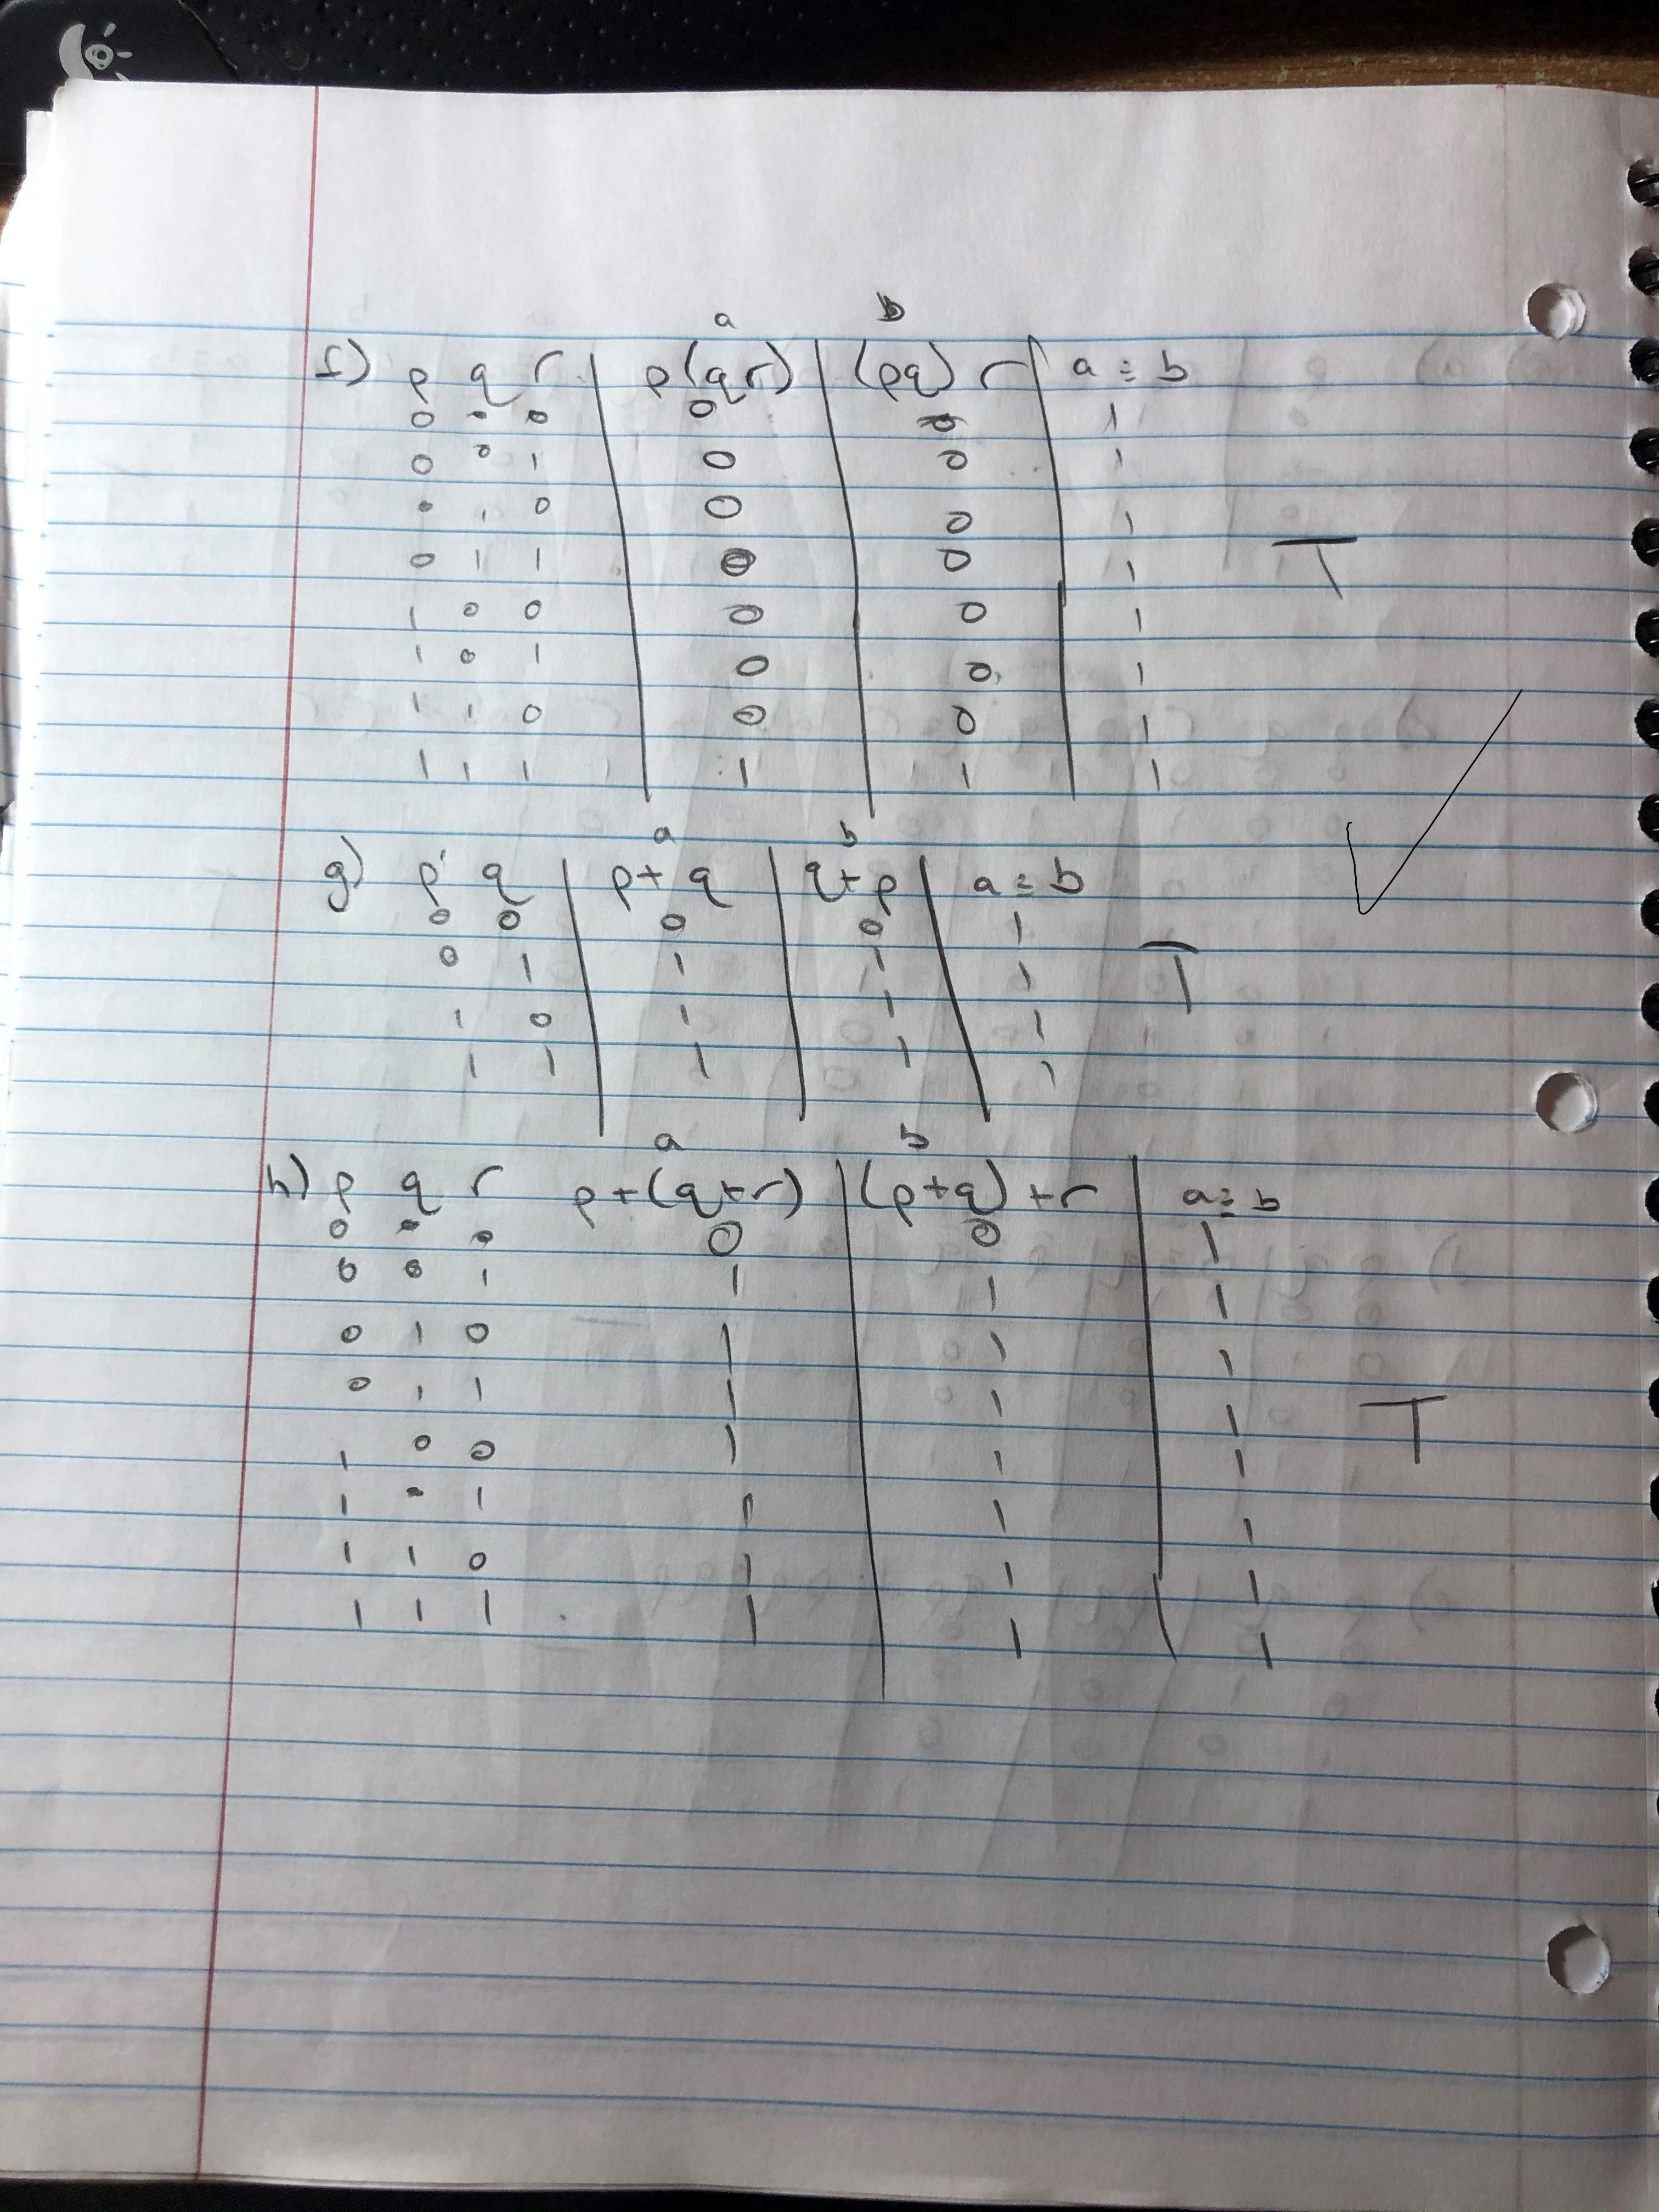 a b
f) p q r p(qr) (pq) r a = b
0 0 0 0 0 1
0 0 1 0 0 1
0 1 0 0 0 1
0 1 1 0 0 1
T
1 0 0 0 0 1
1 0 1 0 0 1
1 1 0 0 0 1
1 1 1 1 1 1
a b
g) p q p+q q+p a = b
0 0 0 0 1
0 1 1 1 1
T
1 0 1 1 1
1 1 1 1 1
a b
h) p q r p+(q+r) (p+q)+r a = b
0 0 0 0 0 1
0 0 1 1 1 1
0 1 0 1 1 1
0 1 1 1 1 1
T
1 0 0 1 1 1
1 0 1 1 1 1
1 1 0 1 1 1
1 1 1 1 1 1